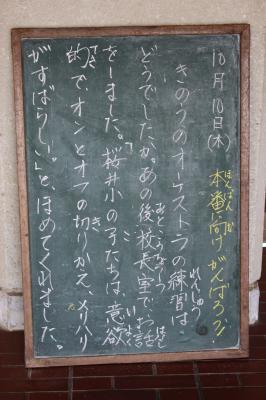 10月10日(木) 本番に向けがんばろう!
きのうのオーケストラの練習は
どうでしたか。あの後、校長室でお話
をしました。「桜井小の子たちは、意欲
的で、オンとオフの切りかえ、メリハリ
がすばらしい」と、ほめてくれました。